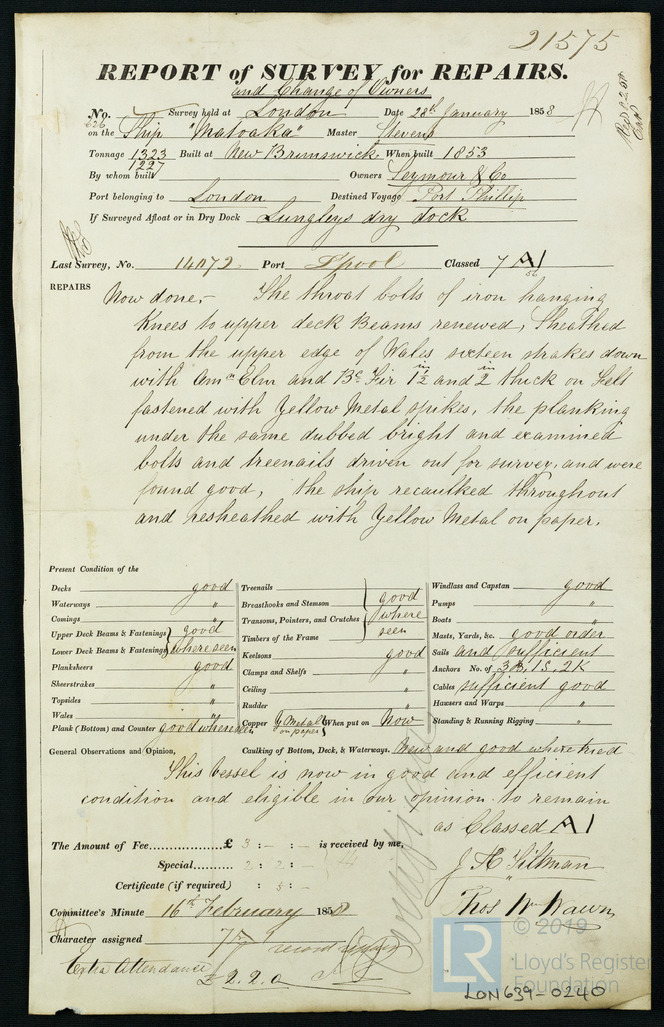 21575
REPORT of SURVEY for REPAIRS.
and Change of Owners
No. 626 Survey held at London Date 28th January 1858
on the Ship "Matoaka" Master Stevens
Tonnage 1323 Built at New Brunswick When built 1853
1227
By whom built Owners Seymour & Co
Port belonging to London Destined Voyage Port Phillip
If Surveyed Afloat or in Dry Dock Lungleys dry dock
Last Survey, No. 14072 Port L'pool Classed 7 A1
56
REPAIRS Now done,- The throat bolts of iron hanging
Knees to upper deck Beams renewed, Sheathed
from the upper edge of Wales sixteen strakes down
with Amn Elm and Bc Fir 1½ in and 2 in thick on Felt
fastened with Yellow Metal spikes, the planking
under the same dubbed bright and examined
bolts and treenails driven out for survey, and were
found good, the ship recaulked throughout
and resheathed with Yellow Metal on paper.
Present Condition of the
Decks good
Waterways "
Comings "
Upper Deck Beams & Fastenings } good
Lower Deck Beams & Fastenings } where seen
Planksheers good
Sheerstrakes "
Topsides "
Wales "
Plank (Bottom) and Counter good where seen
Treenails
Breasthooks and Stemson } good
Transoms, Pointers, and Crutches } where
Timbers of the Frame } seen
Keelsons good
Clamps and Shelfs "
Ceiling "
Rudder "
Copper { Y Metal on paper } When put on Now
Windlass and Capstan good
Pumps "
Boats "
Masts, Yards, &c. good order
Sails and sufficient
Anchors No. of 3B, 1S, 2K
Cables sufficient good
Hawsers and Warps "
Standing & Running Rigging "
General Observations and Opinion, Caulking of Bottom, Deck, & Waterways. New and good where tried
This vessel is now in good and efficient
condition and eligible in our opinion to remain
as Classed A1
The Amount of Fee £ 3 : - : - is received by me,
Special 2 : 2 : -
Certificate (if required) : 5 : -
J H Tiltman
Thos W Wawn
Committee's Minute 16th February 1858
Character assigned 7
Extra Attendance
£2.2.0
Certificate
LR
© 2019
Lloyd's Register
Foundation
LON639-0240